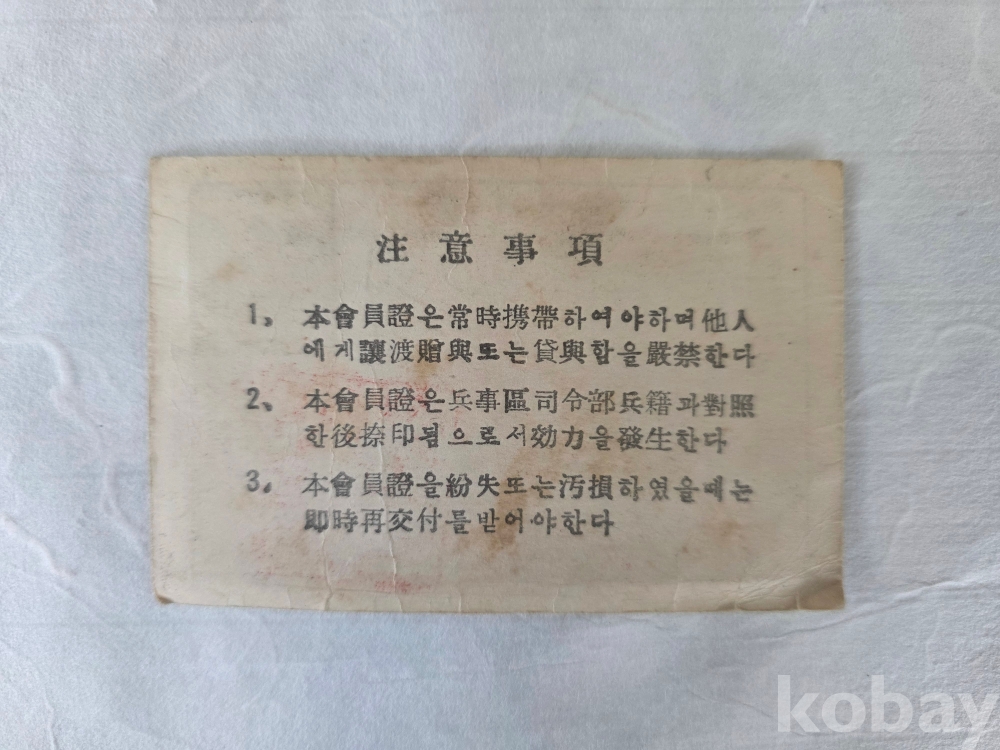 注意事項
1。 本會員證은常時携帶하여야하며他人
에게讓渡贈與또는貸與함을嚴禁한다
2、 本會員證은兵事區司令部兵籍과對照
한後捺印됨으로서効力을發生한다
3。 本會員證을紛失또는汚損하였을때는
即時再交付를받어야한다
kobay